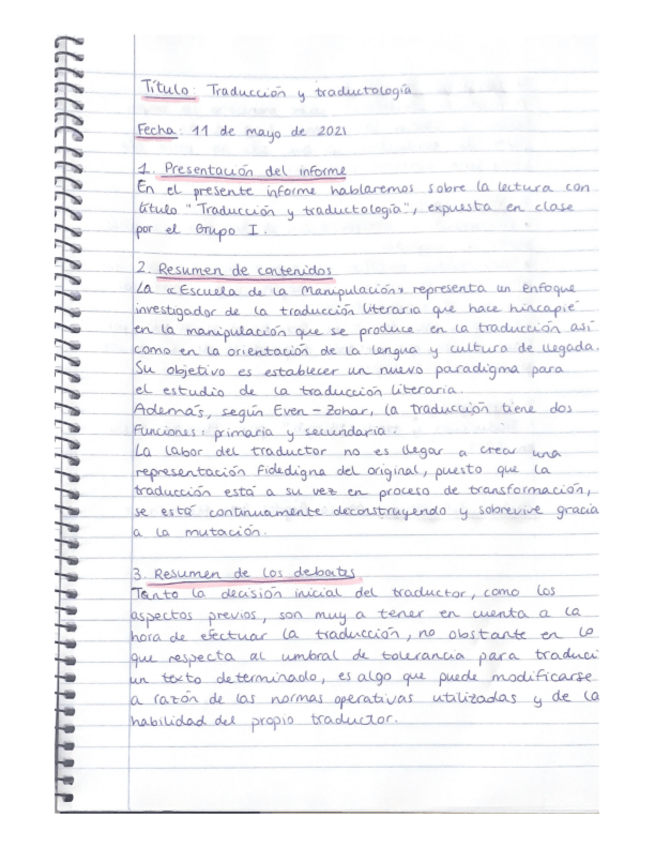 Título: Traducción y traductología
Fecha: 11 de mayo de 2021
1. Presentación del informe
En el presente informe hablaremos sobre la lectura con
título "Traducción y traductología", expuesta en clase
por el Grupo I.
2. Resumen de contenidos
La «Escuela de la Manipulación» representa un enfoque
investigador de la traducción literaria que hace hincapié
en la manipulación que se produce en la traducción así
como en la orientación de la lengua y cultura de llegada.
Su objetivo es establecer un nuevo paradigma para
el estudio de la traducción literaria.
Además, según Even-Zohar, la traducción tiene dos
funciones: primaria y secundaria.
La labor del traductor no es llegar a crear una
representación fidedigna del original, puesto que la
traducción está a su vez en proceso de transformación,
se está continuamente deconstruyendo y sobrevive gracia
a la mutación.
3. Resumen de los debates
Tanto la decisión inicial del traductor, como los
aspectos previos, son muy a tener en cuenta a la
hora de efectuar la traducción, no obstante en lo
que respecta al umbral de tolerancia para traduci
un texto determinado, es algo que puede modificarse
a razón de las normas operativas utilizadas y de la
habilidad del propio traductor.